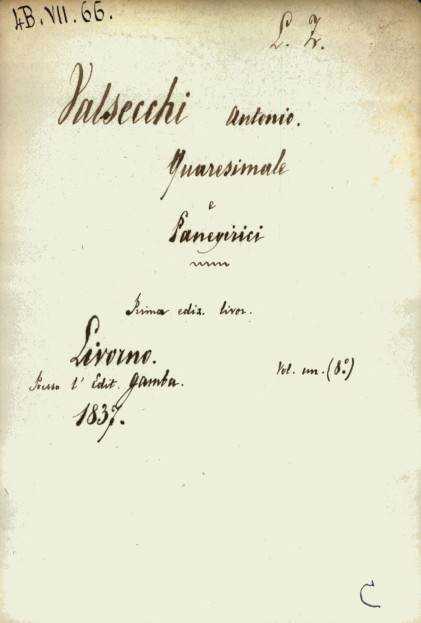 4B.VII.66.
L. Z.
Valsecchi Antonio.
Quaresimale
e
Panegirici
Prima ediz. livor.
Livorno.
Presso l' Edit. Gamba.
Vol. un. (8º.)
1837.
C